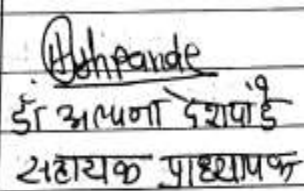 Deshpande
डॉ अल्पना देशपांडे
सहायक प्राध्यापक